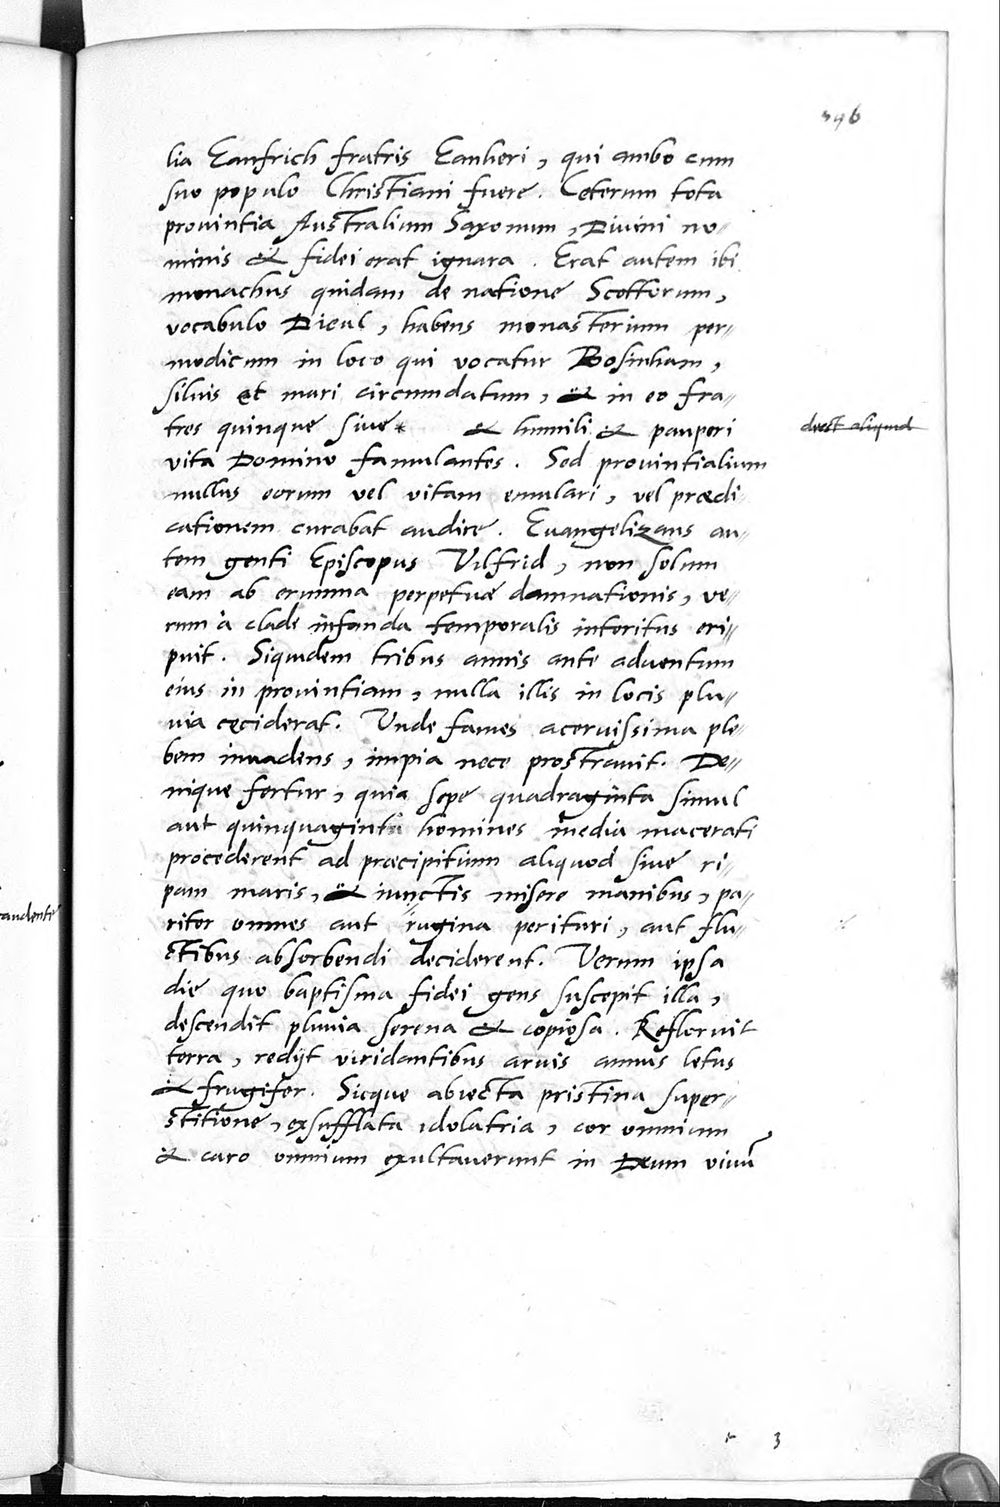 396
lia Eanfrich fratris Eanheri, qui ambo cum
suo populo Christiani fuere. Ceterum tota
prouintia Australium Saxonum, Diuini no-
minis & fidei erat ignara. Erat autem ibi
monachus quidam de natione Scottorum,
vocabulo Dicul, habens monasterium per-
modicum in loco qui vocatur Bosinham,
siluis et mari circumdatum, & in eo fra-
tres quinque siue * & humili & pauperi
deest aliquid
vita Domino famulantes. Sed prouintialium
nullus eorum vel vitam emulari, vel prædi-
cationem curabat audire. Euangelizans au-
tem genti Episcopus Vilfrid, non solum
eam ab erumna perpetuæ damnationis, ve-
rum à clade infanda temporalis interitus eri-
puit. Siquidem tribus annis ante aduentum
eius in prouintiam, nulla illis in locis plu-
uia ceciderat. Unde fames aceruissima ple-
bem inuadens, impia nece prostrauit. De-
nique fertur, quia sepe quadraginta simul
aut quinquaginta homines inedia macerati
procederent ad præcipitium aliquod siue ri-
pam maris, & iunctis misere manibus, pa-
riter omnes aut rugina perituri, aut flu-
ctibus absorbendi deciderent. Verum ipsa
die quo baptisma fidei gens suscepit illa,
descendit pluuia serena & copiosa. Refloruit
terra, redijt viridantibus aruis annus letus
& frugifer. Sicque abiecta pristina super-
stitione, exsufflata idolatria, cor omnium
& caro omnium exultauerunt in Deum viuū
r 3